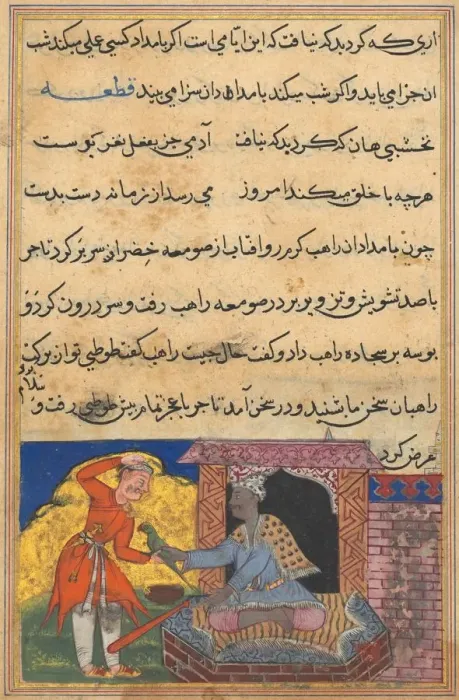 اری که کرد بد که نیافت که این ایامی است اکر بامداد کسی عملی میکند شب
ان جزا می یابد واکر شب میکند بامدادان سزا می بیند قطعه
نخشبی هان که کرد بد که نیافت آدمی جز بفعل نغز نوست
هرچه با خلق میکند امروز می رسد از زمانه دست بدست
چون بامدادان راهب کرم رو افتاب از صومعه خضران سر بر کرد تاجر
با صد تشویش و تزویر بر در صومعه راهب رفت و سر درون کرد و
بوسه بر سجاده راهب داد و کفت حال چیست راهب کفت طوطی تو از برکت
راهبان سخن ما بشنید و در سخن آمد تاجر با عجز تمام پیش طوطی رفت و
سلام
عرض کرد